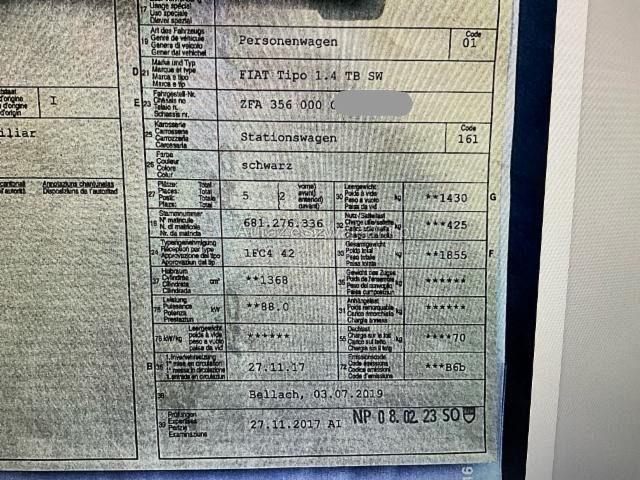 17 Usage spécial
Uso speciale
Diever spezial
19 Art des Fahrzeugs
Genre de véhicule
Genere di veicolo
Gener dal vehichel
Personenwagen
Code
01
D 21 Marke und Typ
Marque et type
Marca e tipo
Marca e tip
FIAT Tipo 1.4 TB SW
E 23 Fahrgestell-Nr.
Châssis no
Telaio n.
Schassis nr.
ZFA 356 000
25 Karosserie
Carrosserie
Carrozzeria
Carossaria
Stationswagen
Code
161
26 Farbe
Couleur
Colore
Colur
schwarz
I
iliar
Annotaziuns chantunalas
Disposiziuns da l'autoritad
27 Plätze: Total
Places: Total
Posti: Totale
Plazs: Total
5 2
vorne)
avant)
anteriori)
davant)
30 Leergewicht
Poids à vide
Peso a vuoto
Paisa da vid
kg
**1430
G
18 Stammnummer
N° matricule
N. di matricola
Nr. da matricla
681.276.336
32 Nutz-/Sattellast
kg
***425
24 Typengenehmigung
Réception par type
Approvazione del tipo
Approvaziun dal tip
1FC4 42
33 Gesamtgewicht
Poids total
Peso totale
Paisa totala
kg
**1855
F
37 Hubraum
Cylindrée
Cilindrata
Cilindrada
cm³
**1368
35 Gewicht des Zuges
Poids de l'ensemble
Peso del convoglio
kg
******
76 Leistung
Puissance
Potenza
Prestaziun
kW
**88.0
31 Anhängelast
Poids remorquable
Carico rimorchiato
Chargia annexa
kg
******
78 kW/kg
Leergewicht
poids à vide
peso a vuoto
paisa da vid
******
55 Dachlast
Charge sur le toit
Carico sul tetto
Chargia sin il tetg
kg
****70
B 36 1. Inverkehrsetzung
1re mise en circulation
1. messa in circolazione
1. entrada en circulaziun
27.11.17
72 Emissionscode
Code émissions
Codice emissioni
Code d'emissiuns
***B6b
38
Bellach, 03.07.2019
39 Prüfungen
Expertises
Perizie
Examinaziuns
27.11.2017 AI
NP 0 8. 02. 23 SO
16